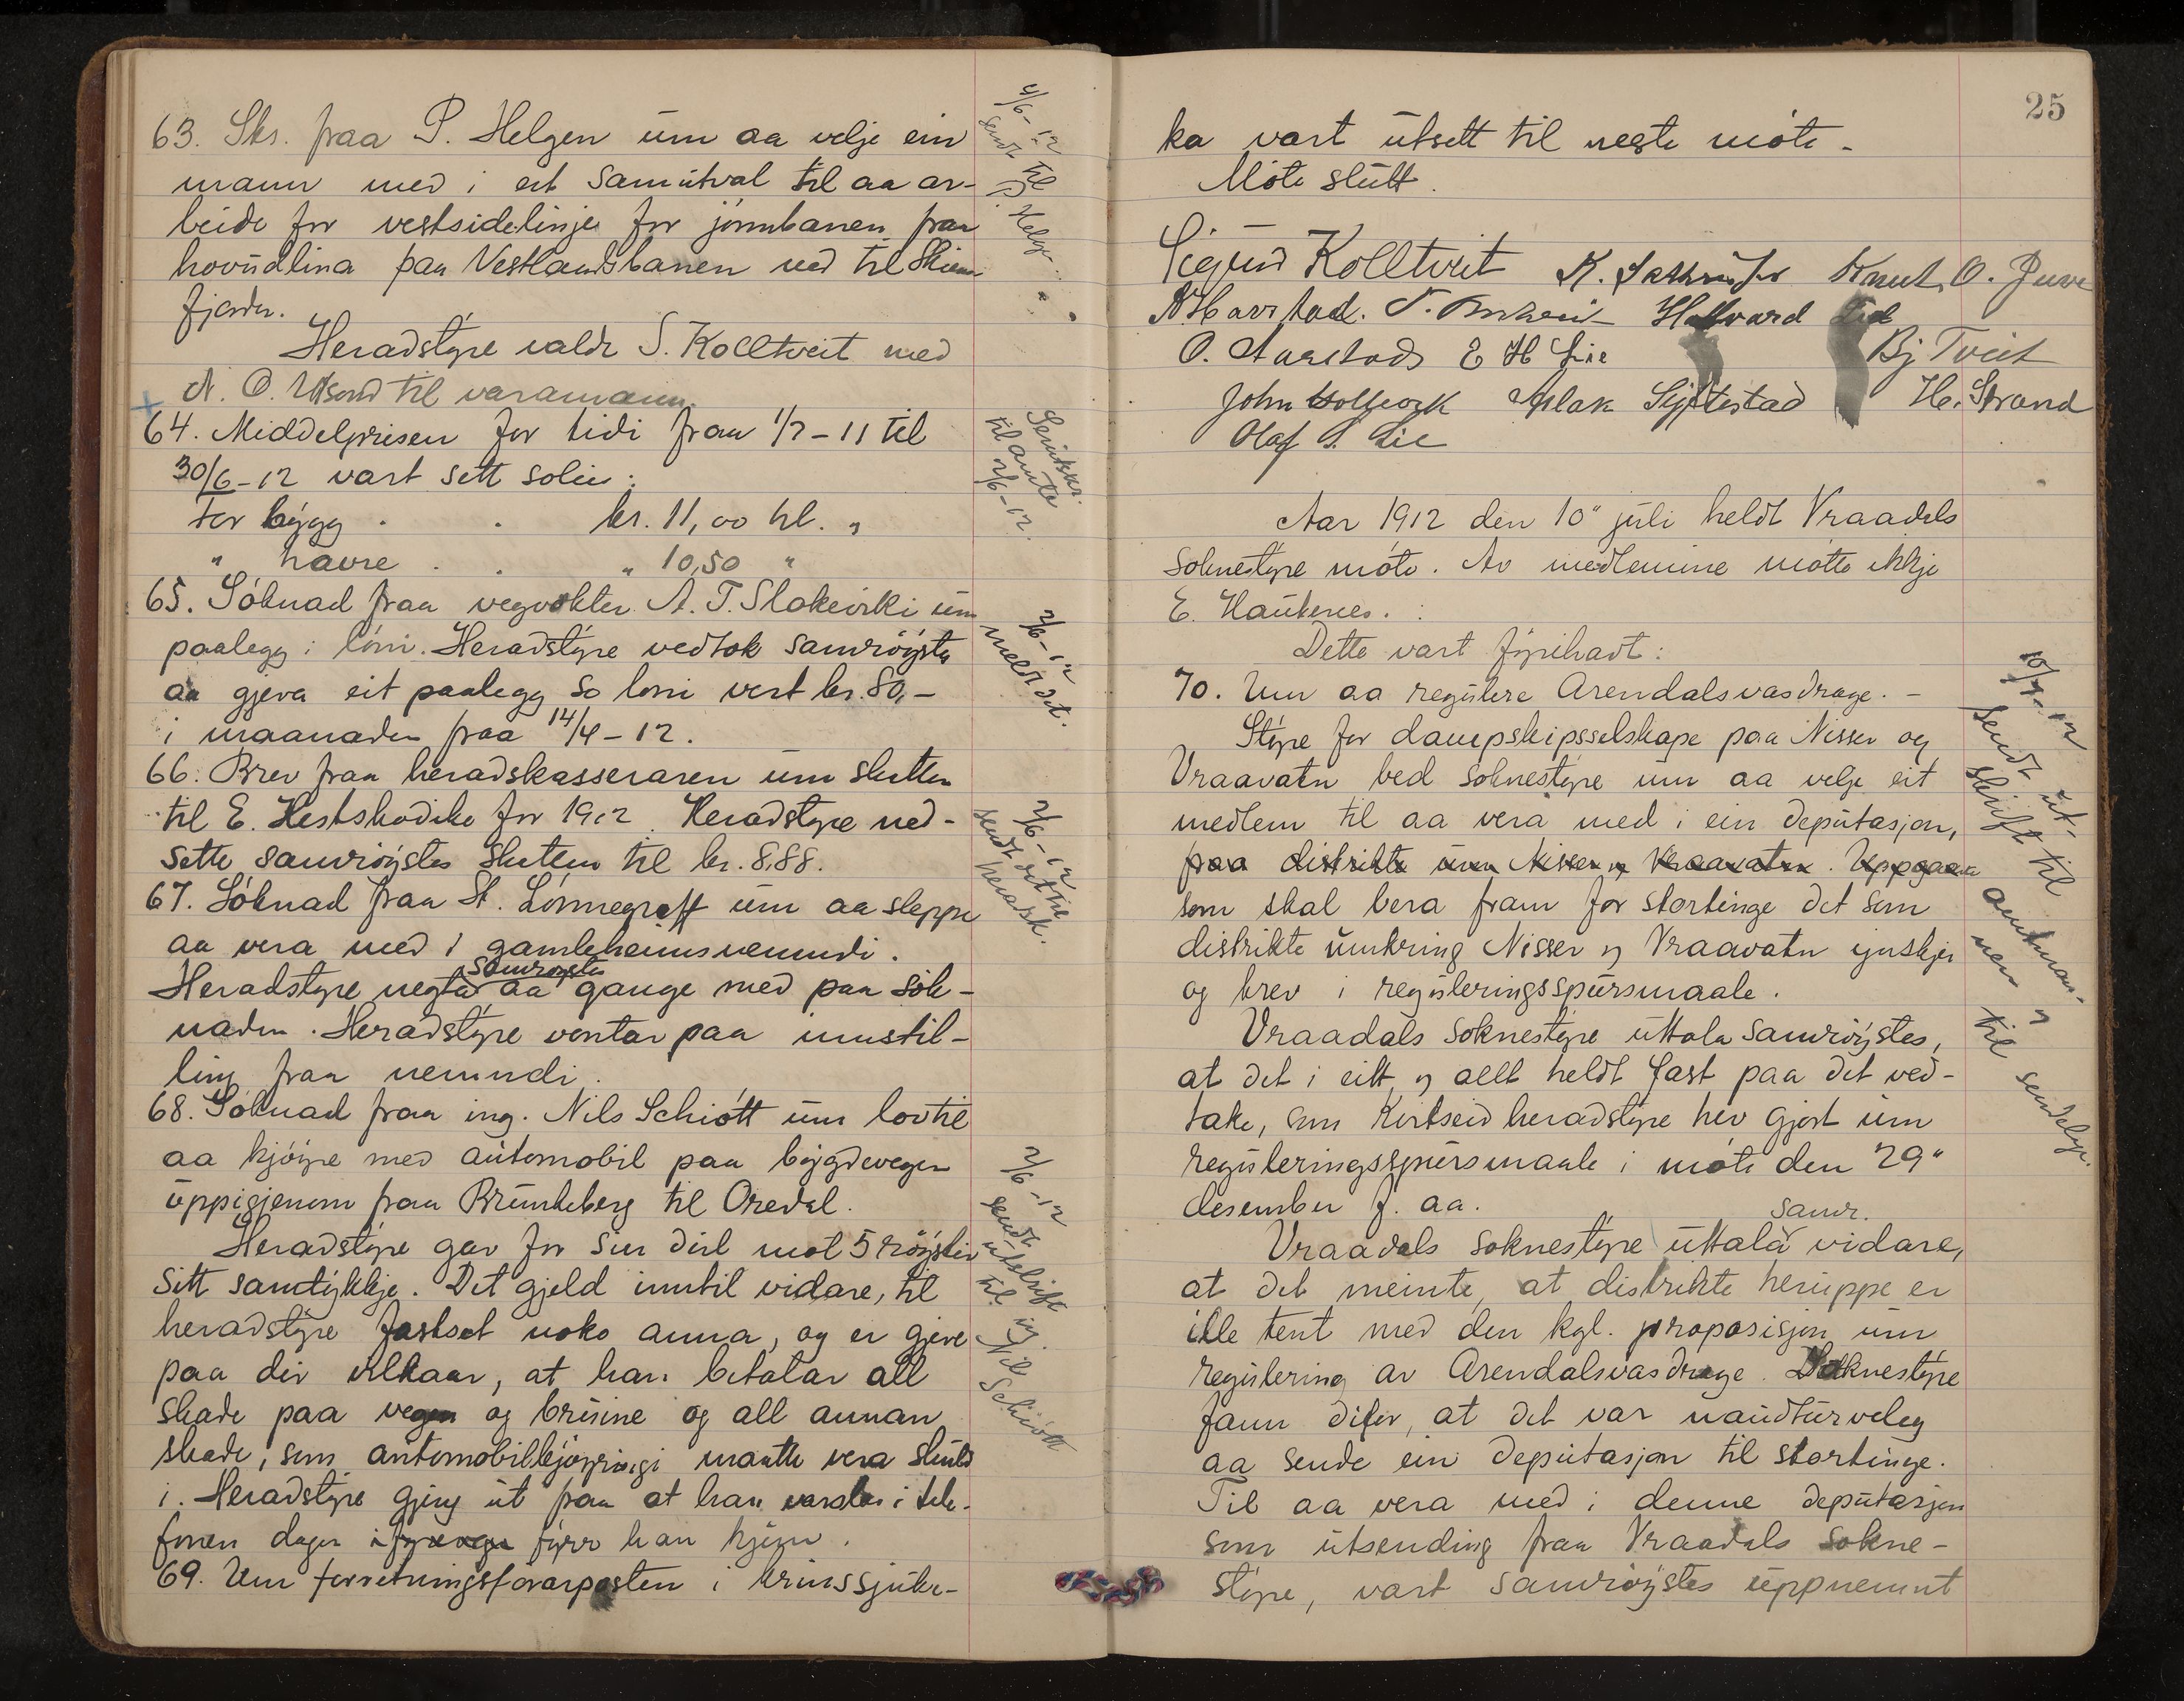 63. Skr. fraa P. Helgen um aa velje ein
mann med i eit samutval til aa ar-
beide for vestsidelinje for jónnbanen fraa
hovudlina paa Vestlandsbanen ned til Skiens
fjorden.
Heradstýre valde S. Kolltveit med
N. O. til varamann.
64. Middelprisen for tidi fraa 1/7-11 til
30/6-12 vart sett soleis:
For býgg . . kr. 11,00 hl. "
" havre . . " 10,50 "
65. Sóknad fraa vegvokter A. T. Slokvirki um
paalegg i lóni. Heradstýre vedtok samróýstes
aa gjeva eit paalegg so loni vert kr. 80,-
i maanaden fraa 14/4-12.
66. Brev fraa heradskasseraren um skatten
til E. Hestskodike for 1912. Heradstýre ned-
sette samróýstes skatten til kr. 8,88.
67. Sóknad fraa St. Lónnegraff um aa sleppe
aa vera med i gamleheimsnemndi.
samróystes
Heradstýre negta aa gange med paa sók-
naden. Heradstýre ventar paa innstil-
ling fraa nemndi.
68. Sóknad fraa ing. Nils Schiótt um lov til
aa kjóýre med automobil paa býgdevegen
uppigjenom fraa Brunkeberg til Oredal.
Heradstýre gav for sin del mot 5 róýster
sitt samtýkkje. Det gjeld inntil vidare, til
heradstýre fastset noko anna, og er gjeve
paa dei vilkaar, at han betalar all
skade paa vegen og bruine og all annan
skade, som automobilkjóýringi maatte vera skuld
i. Heradstýre gjeng ut fraa at han varslar i tele-
fonen dagen fýrr han kjem.
69. Um forretningsførarposten i krinssjuke-
4/6-12
sendt til
P. Helgen
Særutskr.
til amte
2/6-12.
2/6-12
meldt det.
2/6-12
sendt det til
heradsk.
2/6-12
sendt
utskrift
til ing
Nils
Schiótt
25
ka vart utsett til neste móte.
Móte slutt.
Sigurd Kolltveit Knut O. Juve
N. Haarstad. Halvard Lid
O. Aarstad E H Lie Bj Tveit
John Aslak Siftestad H. Strand
Olaf S. Lie
Aar 1912 den 10" juli heldt Vraadals
soknestýre móte. Av medlemine mótte ikkje
E. Haukenes.
Dette vart fýrehavt:
70. Um aa regulere Arendalsvasdrage. -
Stýre for dampskipsselskape paa Nisser og
Vraavatn bed soknestýre um aa velje eit
medlem til aa vera med i ein deputasjon,
fraa distrikte um Nisser og Vraavatn. Uppgaava
som skal bera fram for stortinge det som
distrikte umkring Nisser og Vraavatn ýnskjer
og krev i reguleringsspursmaale.
Vraadals soknestýre uttala samróýstes,
at det i eitt og allt heldt fast paa det ved-
take, som Kviteseid heradstýre hev gjort um
reguleringsspursmaale i móte den 29"
desember f. aa.
samr.
Vraadals soknestýre uttala vidare,
at det meinte, at distrikte heruppe er
ille tent med den kgl. proposisjon um
regulering av Arendalsvasdrage. Soknestýre
fann difor, at det var naudturveleg
aa sende ein deputasjon til stortinge.
Til aa vera med i denne deputasjon
som utsending fraa Vraadals sokne-
stýre, vart samróýstes uppnemnt
10/7-12
sendt ut-
skrift til
amtman-
nen og
til sendelege.